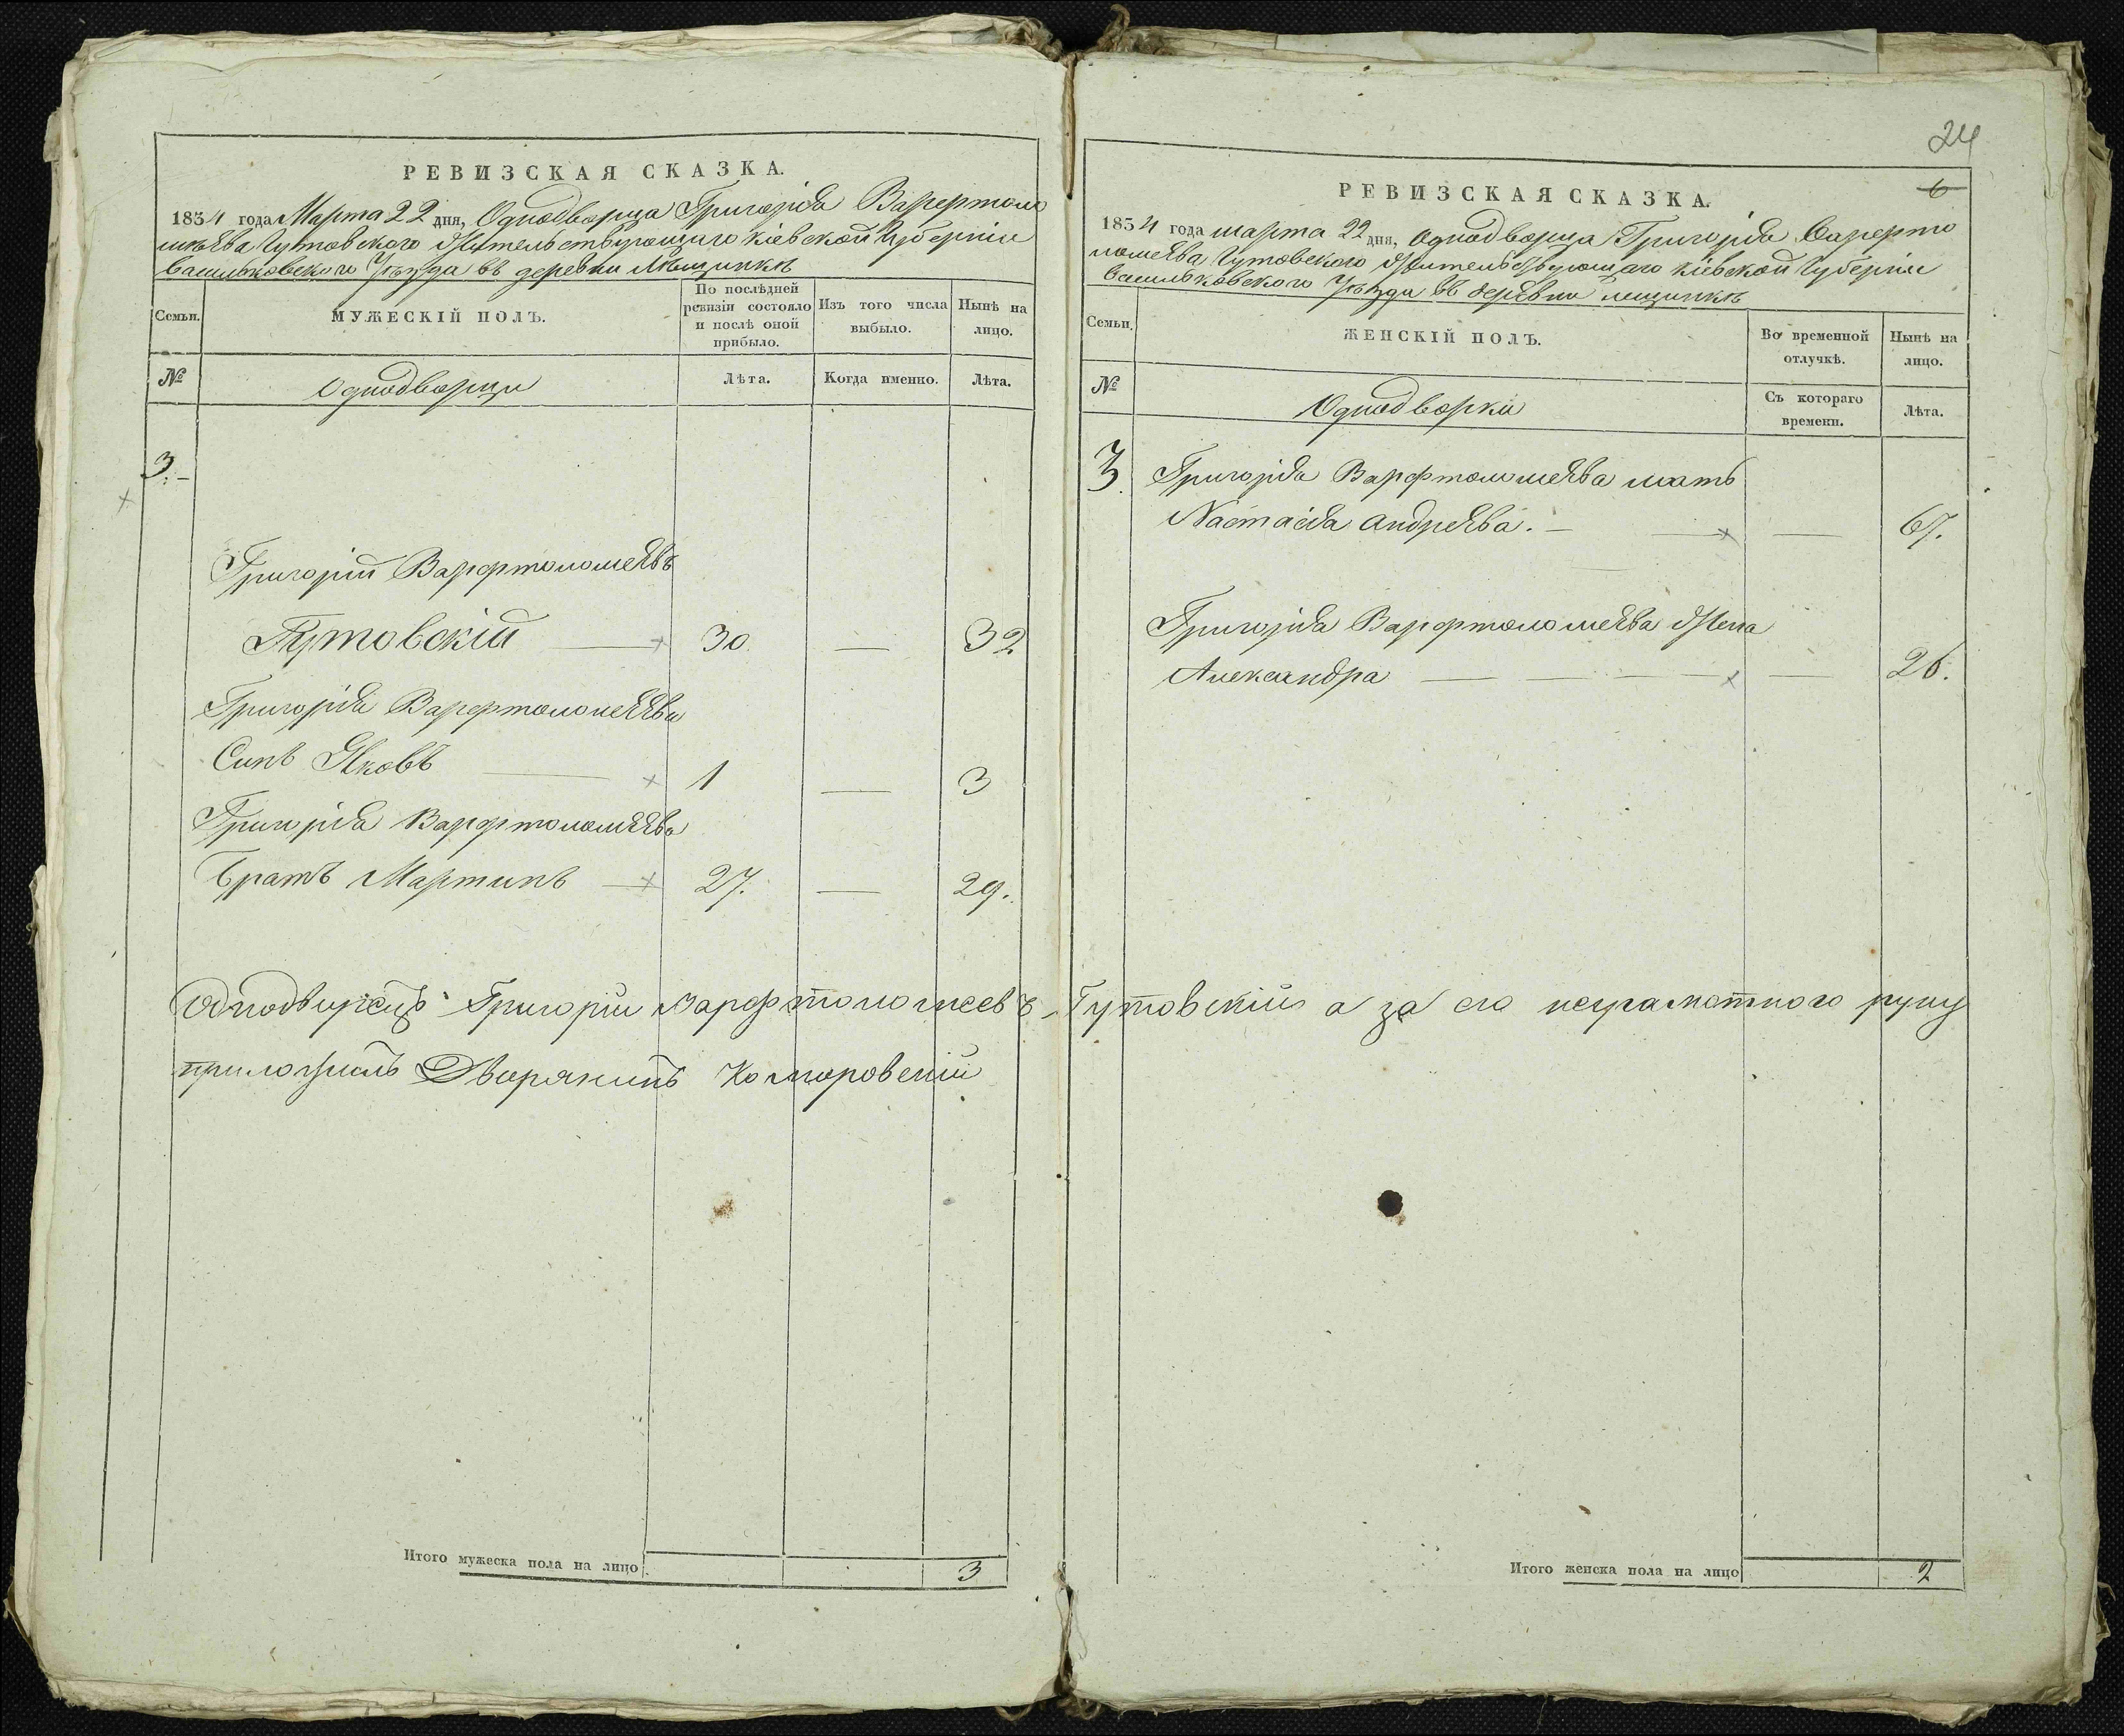 РЕВИЗСКАЯ СКАЗКА.
1854 года Марта 22 дня, Однодворца Григорія Варфтоло
мѣева Гутовского жительствующаго Кіевской Губерніи
Васильковского Уѣзда въ деревни
Семьи.
МУЖЕСКІЙ ПОЛЪ.
По послѣдней ревизіи состояло и послѣ оной прибыло.
Изъ того числа выбыло.
Нынѣ на лицо.
№
Однодворци
Лѣта.
Когда именно.
Лѣта.
3.
Григорій Варфтоломеевъ
Гутовскій 30 — 32
Григорія Варфтоломеева
Синъ Яковъ 1 — 3
Григорія Варфтоломеева
Братъ Мартинъ 27. — 29.
Однодворецъ Григорій Варфтоломеевъ Гутовскій а за его неграмотного руку
приложилъ Дворянинъ Коморовскій
Итого мужеска пола на лицо 3
24
6
РЕВИЗСКАЯ СКАЗКА.
1854 года марта 22 дня, Однодворца Григорія Варфто
ломеева Гутовского жительствующаго Кіевской Губерніи
Васильковского Уѣзда въ деревни
Семьи.
ЖЕНСКІЙ ПОЛЪ.
Во временной отлучкѣ.
Нынѣ на лицо.
№
Однодворки
Съ котораго времени.
Лѣта.
3.
Григорія Варфтоломеева мать
Настасія Андреева. — — 67.
Григорія Варфтоломеева жена
Александра — — 26.
Итого женска пола на лицо 2